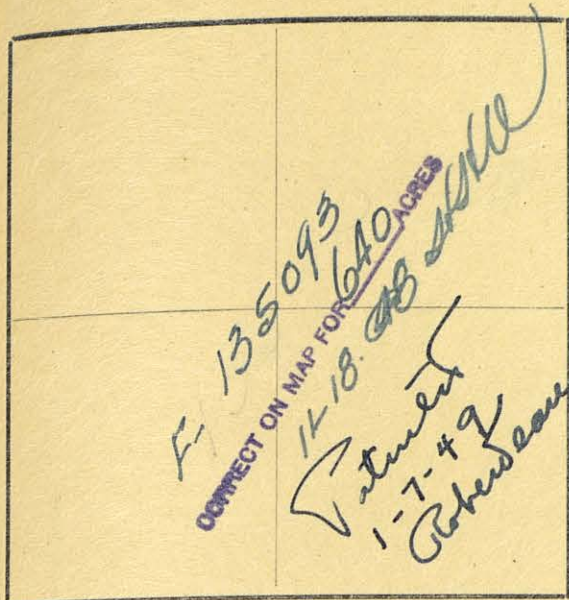 F- 135093
CORRECT ON MAP FOR 640 ACRES
11-18.
Patented
1-7-49
Roberdeau